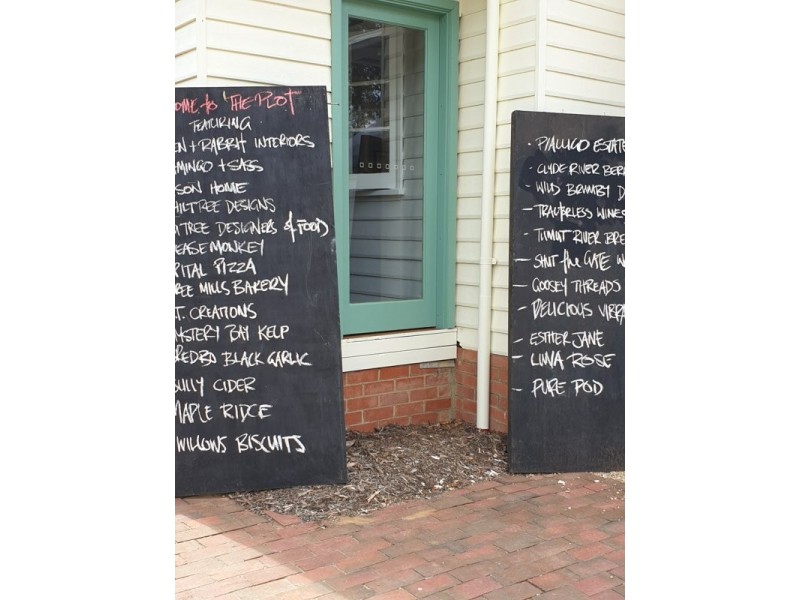 OME to 'THE PLOT'
FEATURING
EN + RABBIT INTERIORS
MINGO + SASS
SON HOME
HILTREE DESIGNS
TREE DESIGNERS & FOOD
EASE MONKEY
PITAL PIZZA
REE MILLS BAKERY
.T. CREATIONS
MYSTERY BAY KELP
REDBO BLACK GARLIC
BULLY CIDER
MAPLE RIDGE
WILLOWS BISCUITS
- PIALLIGO ESTATE
- CLYDE RIVER BER
- WILD BRUMBY D
- TRAVERLESS WINES
- TUMUT RIVER BRE
- SHUT the GATE W
- GOOSEY THREADS
- DELICIOUS VIBRA
- ESTHER JANE
- LUNA ROSE
- PURE POD